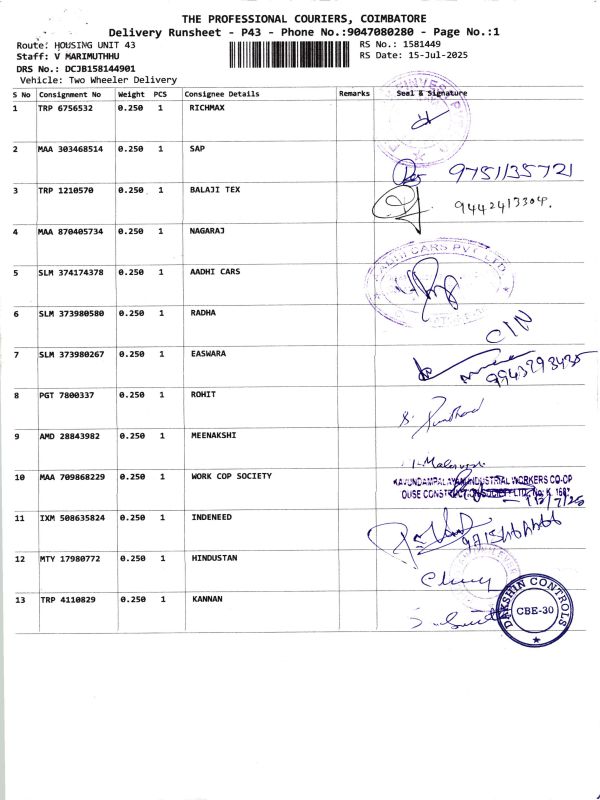 THE PROFESSIONAL COURIERS, COIMBATORE
Delivery Runsheet - P43 - Phone No.:9047080280 - Page No.:1
Route: HOUSING UNIT 43
RS No.: 1581449
Staff: V MARIMUTHHU
RS Date: 15-Jul-2025
DRS No.: DCJB158144901
Vehicle: Two Wheeler Delivery
S No Consignment No Weight PCS Consignee Details Remarks Seal & Signature
1 TRP 6756532 0.250 1 RICHMAX
2 MAA 303468514 0.250 1 SAP
9751135721
3 TRP 1210570 0.250 1 BALAJI TEX
9442413304.
4 MAA 870405734 0.250 1 NAGARAJ
AADHI CARS PVT LTD
5 SLM 374174378 0.250 1 AADHI CARS
6 SLM 373980580 0.250 1 RADHA
C/N
7 SLM 373980267 0.250 1 EASWARA
9943298435
8 PGT 7800337 0.250 1 ROHIT
9 AMD 28843982 0.250 1 MEENAKSHI
10 MAA 709868229 0.250 1 WORK COP SOCIETY
KAVUNDAMPALAYAM INDUSTRIAL WORKERS CO-OP
OUSE CONSTRUCTION SOCIETY LTD., No: K. 1687
11 IXM 508635824 0.250 1 INDENEED
12 MTY 17980772 0.250 1 HINDUSTAN
13 TRP 4110829 0.250 1 KANNAN
DAKSHIN CONTROLS
CBE-30